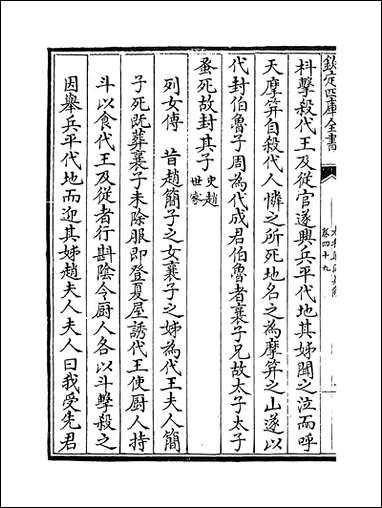 欽定四庫全書
卷四十九
枓擊殺代王及從官遂興兵平代地其姊聞之泣而呼
天摩笄自殺代人憐之所死地名之為摩笄之山遂以
代封伯魯子周為代成君伯魯者襄子兄故太子太子
蚤死故封其子史趙世家
列女傳 昔趙簡子之女襄子之姊為代王夫人簡
子死既葬襄子未除服即登夏屋誘代王使厨人持
斗以食代王及從者行斟陰令厨人各以斗擊殺之
因舉兵平代地而迎其姊趙夫人夫人曰我受先君